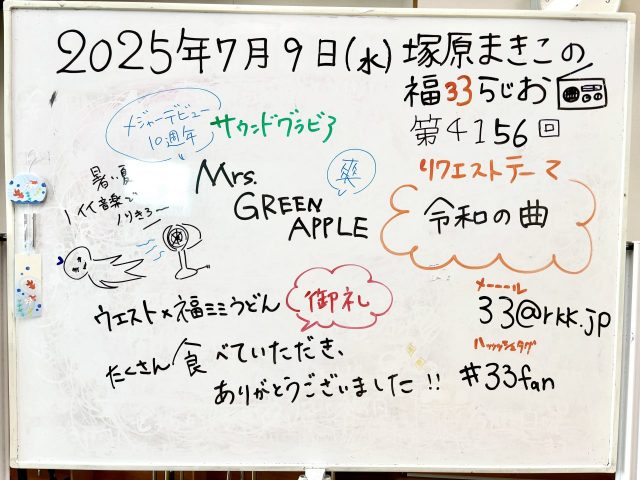 2025年7月9日(水) 塚原まきこの
福33らじお
第4156回
メジャーデビュー
10週年
サウンドグラビア
Mrs.
GREEN
APPLE
爽
暑い夏
イイ音楽で
ノリきろー
リクエストテーマ
令和の曲
ウエスト×福ミミうどん
御礼
たくさん食べていただき、
ありがとうございました!!
メーーール
33@rkk.jp
ハッシュタグ
#33fan